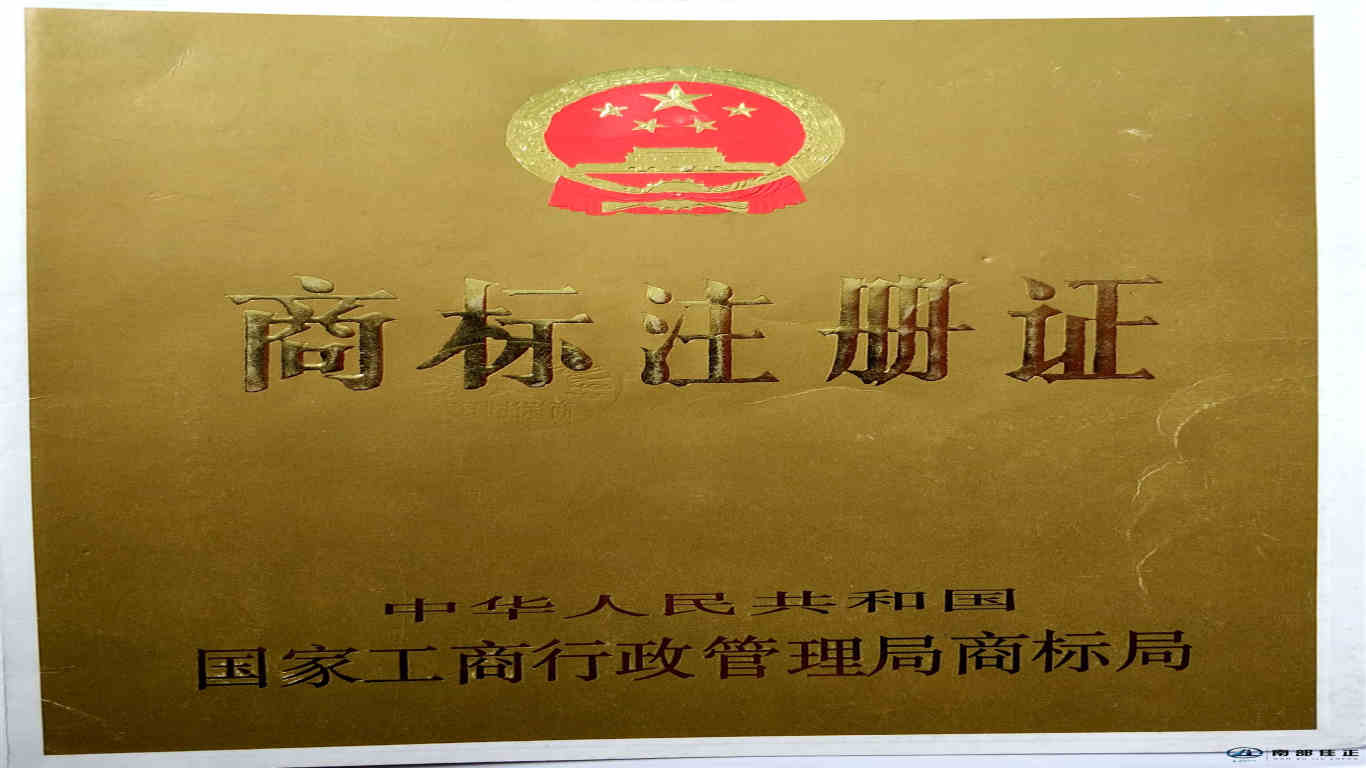 商标注册证
中华人民共和国
国家工商行政管理局商标局
南部佳正